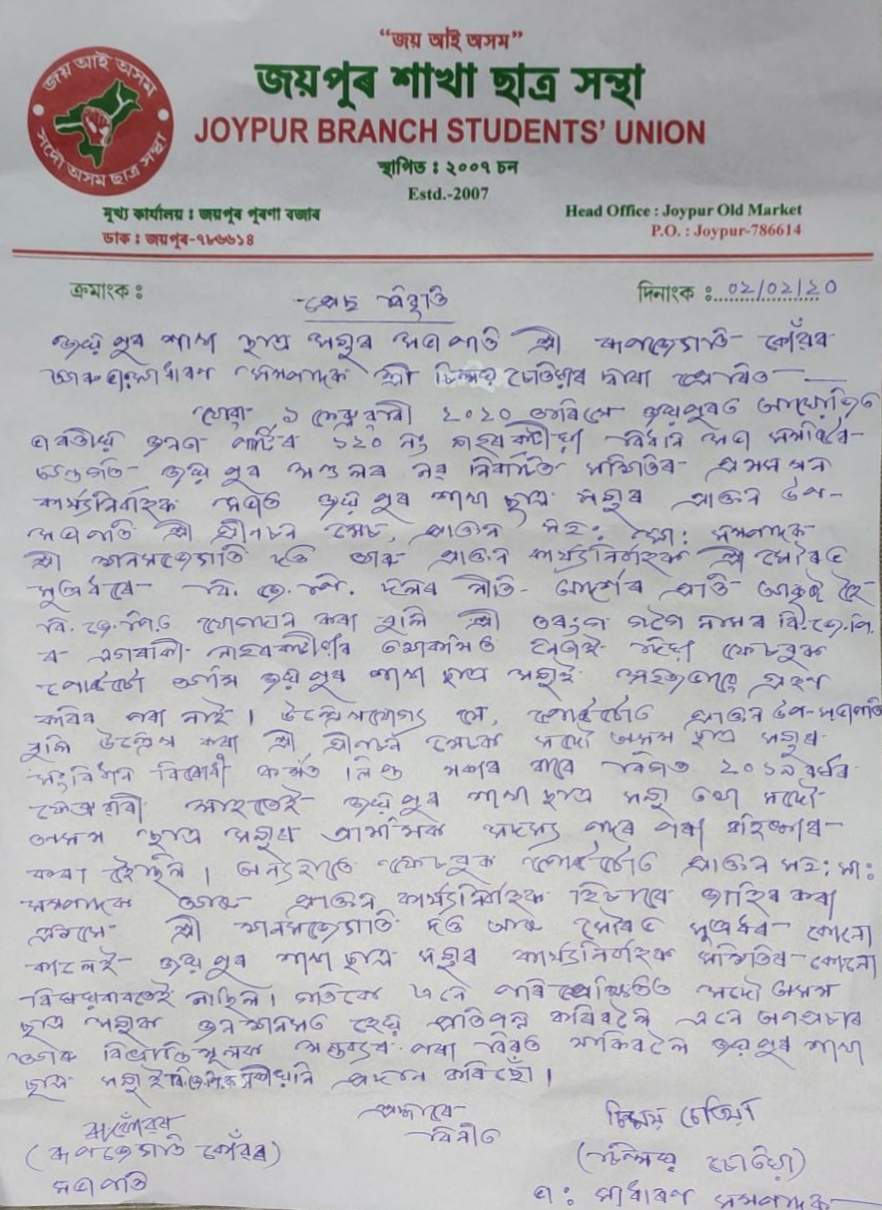 “জয় আই অসম”
জয়পুৰ শাখা ছাত্ৰ সন্থা
JOYPUR BRANCH STUDENTS’ UNION
স্থাপিত : ২০০৭ চন
Estd.-2007
জয় আই অসম
সদৌ অসম ছাত্ৰ সন্থা
মূখ্য কাৰ্যালয় : জয়পুৰ পুৰণা বজাৰ
ডাক : জয়পুৰ-৭৮৬৬১৪
Head Office : Joypur Old Market
P.O. : Joypur-786614
ক্ৰমাংক :
দিনাংক : 02/02/20
প্ৰেছ বিবৃতি
জয়পুৰ শাখা ছাত্ৰ সন্থাৰ সভাপতি শ্ৰী ৰূপজ্যোতি কোঁৱৰ
আৰু ভা: সাধাৰণ সম্পাদক শ্ৰী চিন্ময় চেতিয়াৰ দ্বাৰা প্ৰেৰিত —
যোৱা ১ ফেব্ৰুৱাৰী ২০২০ তাৰিখে জয়পুৰত আয়োজিত
ভাৰতীয় জনতা পাৰ্টিৰ ১২০ নং নাহৰকটীয়া বিধান সভা সমষ্টিৰ
অন্তৰ্গত জয়পুৰ মণ্ডলৰ নৱ নিৰ্বাচিত সমিতিৰ প্ৰথমখন
কাৰ্য্যনিৰ্বাহক সভাত জয়পুৰ শাখা ছাত্ৰ সন্থাৰ প্ৰাক্তন উপ-
সভাপতি শ্ৰী শ্ৰীপচন সেচ, প্ৰাক্তন সহ: সা: সম্পাদক
শ্ৰী মানসজ্যোতি দত্ত আৰু প্ৰাক্তন কাৰ্য্যনিৰ্বাহক শ্ৰী সৌৰভ
সূত্ৰধৰে বি. জে. পি. দলৰ নীতি আদৰ্শৰ প্ৰতি আকৃষ্ট হৈ
বি. জে. পিত যোগদান কৰা বুলি শ্ৰী তৰুণ গগৈ নামৰ বি. জে. পি.
ৰ এগৰাকী নাহৰকটীয়াৰ
পোষ্টটো জয়পুৰ শাখা ছাত্ৰ সন্থাই সহজভাৱে গ্ৰহণ
কৰিব পৰা নাই। উল্লেখযোগ্য যে, পোষ্টটোত প্ৰাক্তন উপ-সভাপতি
বুলি উল্লেখ কৰা শ্ৰী সেচক সদৌ অসম ছাত্ৰ সন্থাৰ
সংবিধান বিৰোধী কামত লিপ্ত থকাৰ বাবে বিগত ২০১৯ বৰ্ষৰ
ফেব্ৰুৱাৰী মাহতেই জয়পুৰ শাখা ছাত্ৰ সন্থা তথা সদৌ
অসম ছাত্ৰ সন্থাৰ প্ৰাথমিক সদস্য পদৰ পৰা বহিষ্কাৰ
কৰা হৈছিল। অন্যহাতে ফেচবুক পোষ্টটোত প্ৰাক্তন সহ: সা:
সম্পাদক আৰু প্ৰাক্তন কাৰ্য্যনিৰ্বাহক হিচাবে জাহিৰ কৰা
ক্ৰমে শ্ৰী মানসজ্যোতি দত্ত আৰু সৌৰভ সূত্ৰধৰ কোনো
কালেই জয়পুৰ শাখা ছাত্ৰ সন্থাৰ কাৰ্য্যনিৰ্বাহক সমিতিৰ কোনো
বিষয়ববীয়েই নাছিল। গতিকে এনে পৰিপ্ৰেক্ষিতত সদৌ অসম
ছাত্ৰ সন্থাক জনমানসত হেয় প্ৰতিপন্ন কৰিবলৈ এনে অপপ্ৰচাৰ
আৰু বিভ্ৰান্তিমূলক মন্তব্যৰ পৰা বিৰত থাকিবলৈ জয়পুৰ শাখা
ছাত্ৰ সন্থাই প্ৰদান কৰিছোঁ।
ধন্যবাদেৰে
বিনীত
ৰূ কোঁৱৰ
(ৰূপজ্যোতি কোঁৱৰ)
সভাপতি
চিন্ময় চেতিয়া
(চিন্ময় চেতিয়া)
ভা: সাধাৰণ সম্পাদক